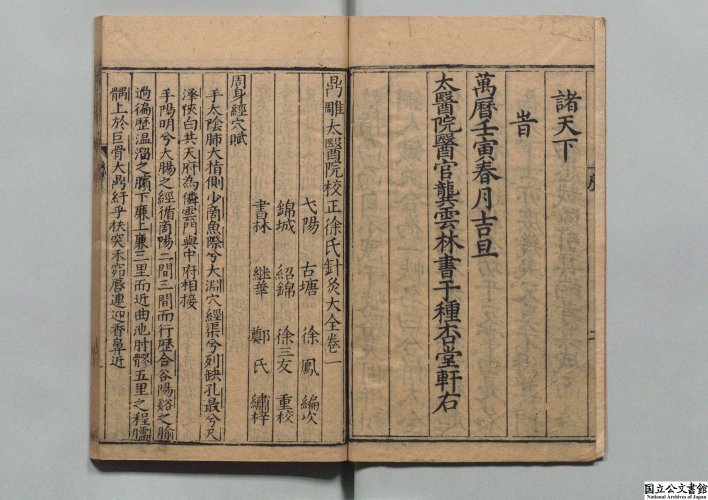 諸天下
旹
萬曆壬寅春月吉旦
太醫院醫官龔雲林書于種杏堂軒右
序
鼎雕太醫院校正徐氏針灸大全卷一
弋陽 古塘 徐鳳 編次
錦城 紹錦 徐三友 重校
書林 繼華 鄭氏 繡梓
周身經穴賦
手太陰肺大指側少商魚際兮太淵穴經渠兮列缺孔最兮尺
澤俠白共天府為僯雲門與中府相接
手陽明兮大腸之經循商陽二間三間而行歷合谷陽谿之腧
過徧歷溫溜之臏下廉上廉三里而近曲池肘髎五里之程臑
髃上於巨骨天鼎紆乎扶突禾窌唇連迎香鼻近
国立公文書館
National Archives of Japan